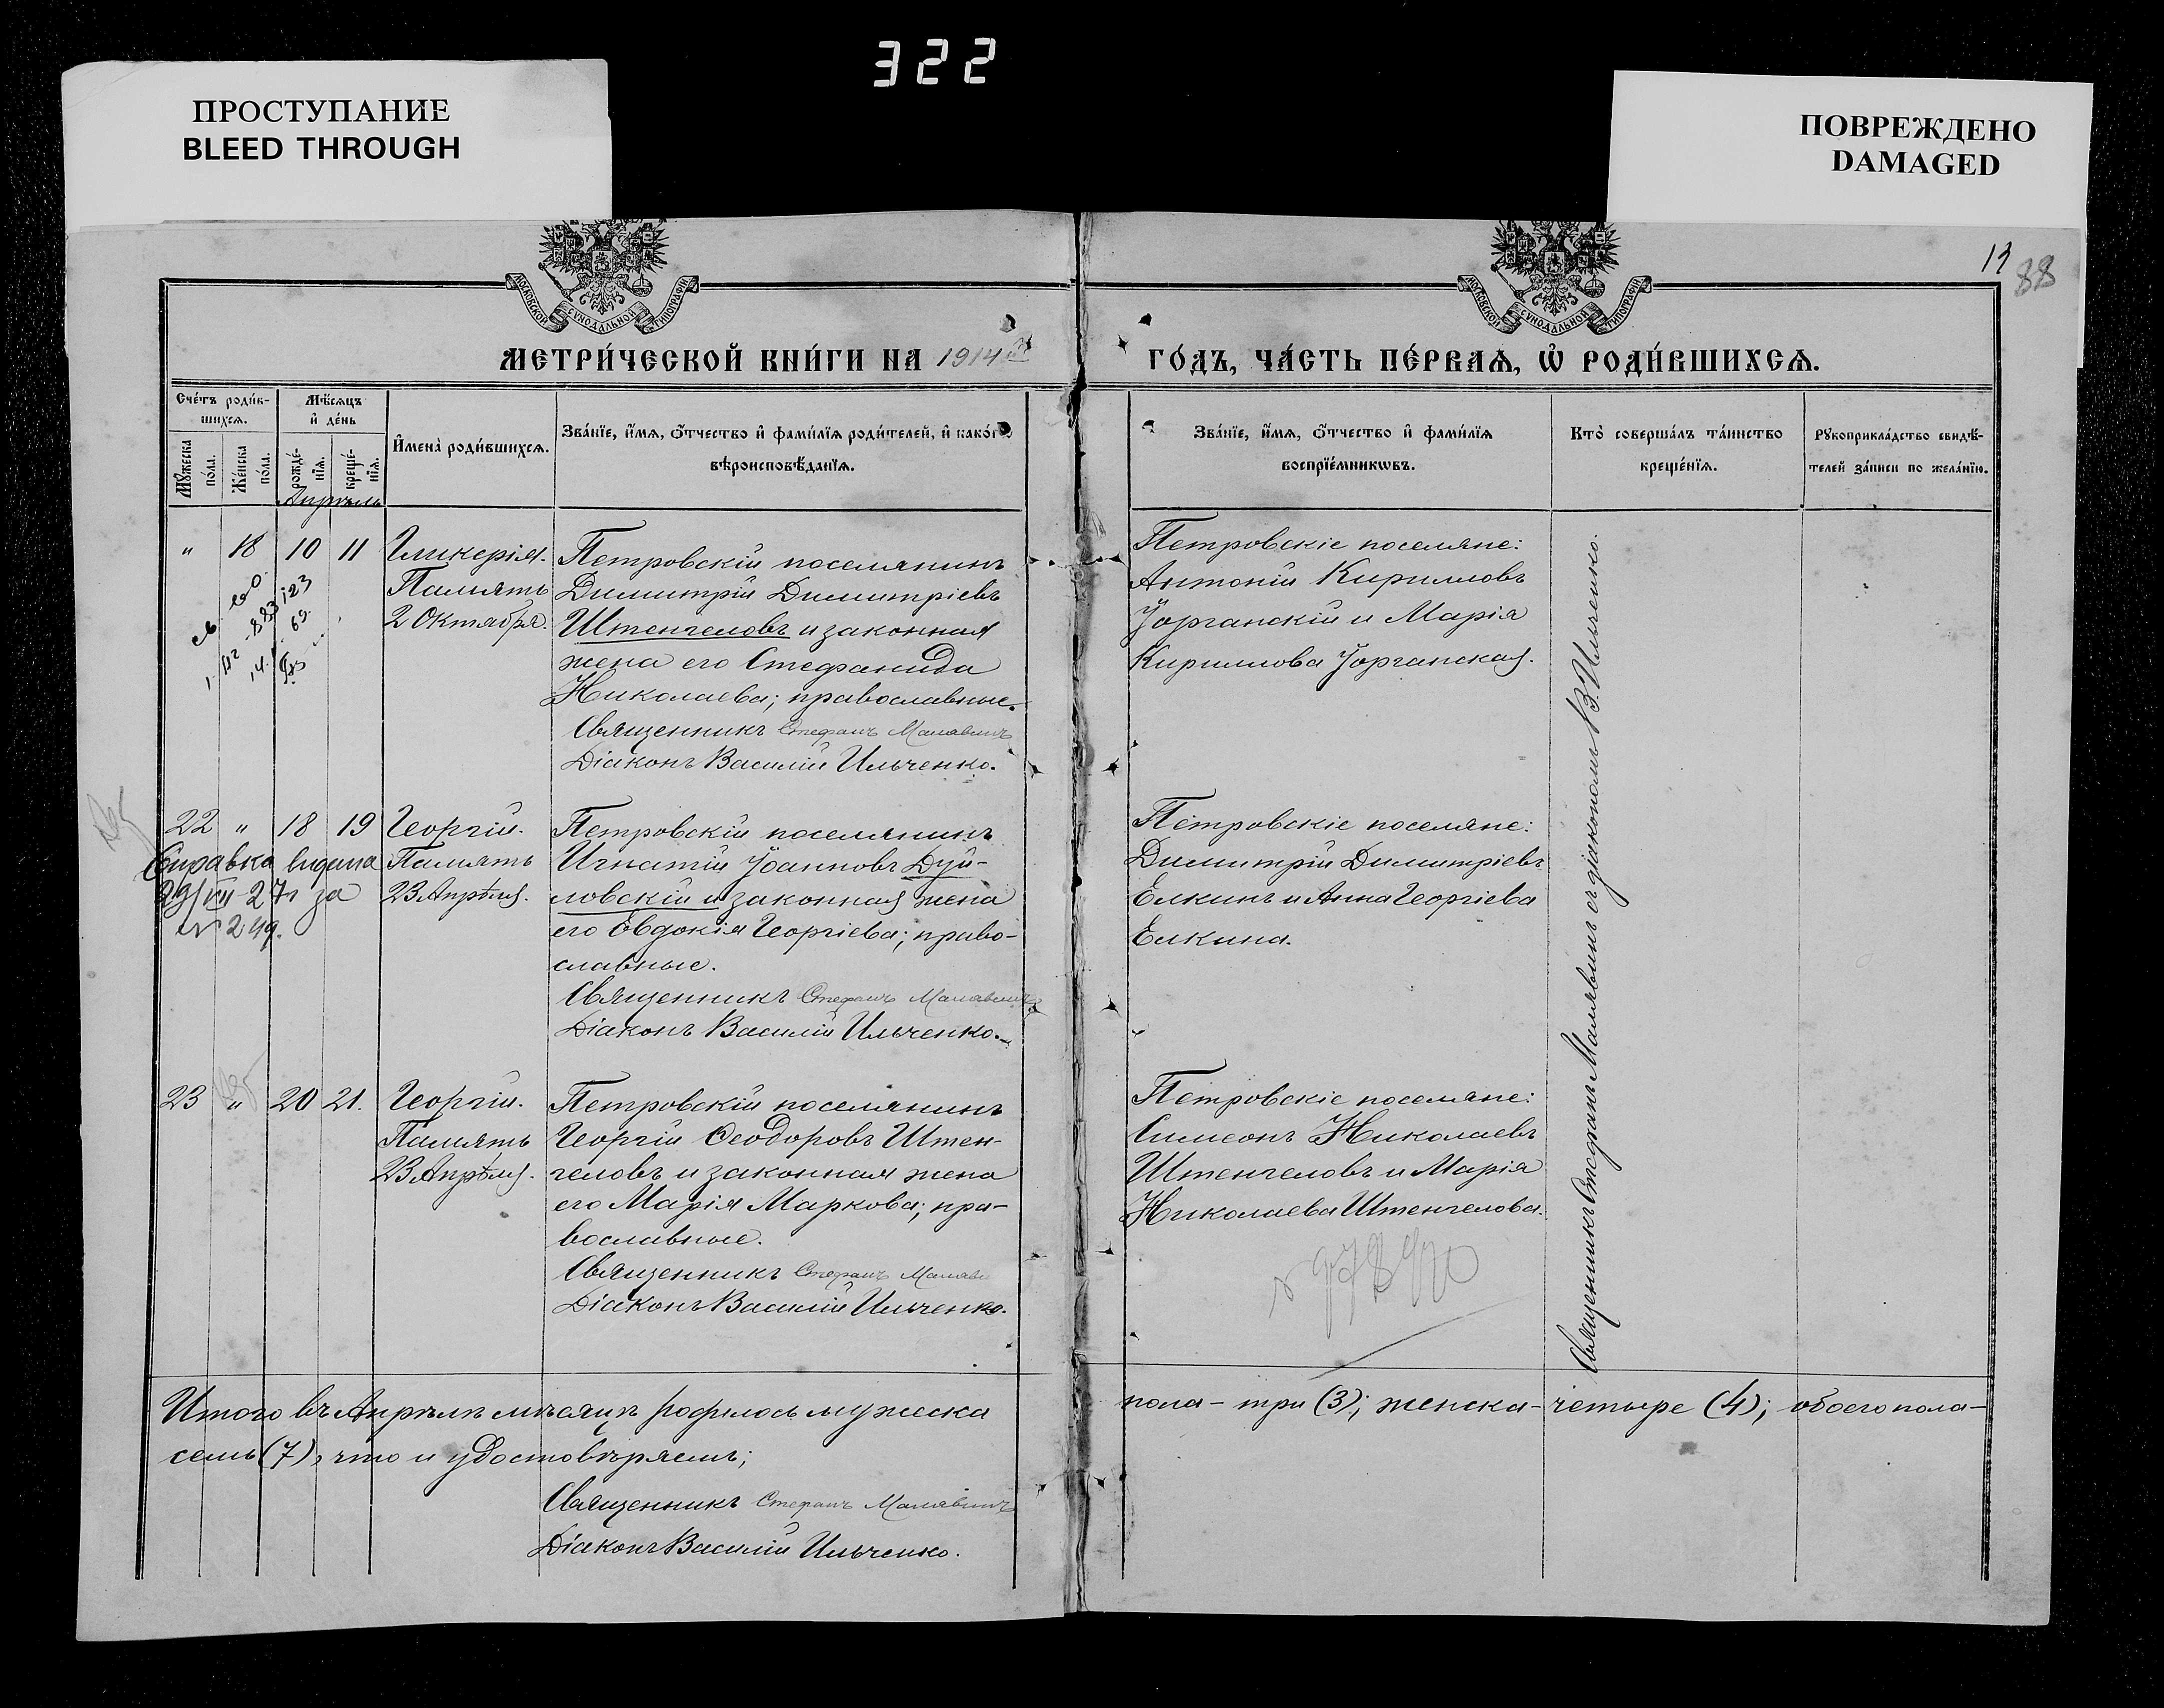 322
ПРОСТУПАНИЕ
BLEED THROUGH
ПОВРЕЖДЕНО
DAMAGED
МОСКОВСКОЙ СУНОДАЛЬНОЙ ТИПОГРАФІИ
МОСКОВСКОЙ СУНОДАЛЬНОЙ ТИПОГРАФІИ
13
88
МЕТРИ́ЧЕСКОЙ КНИ́ГИ НА 1914
ГО́ДЪ, ЧА́СТЬ ПЕ́РВАѦ, Ѡ҆ РОДИ́ВШИХСѦ.
Сче́тъ роди́в-
шихсѧ.
Мѣ́сѧцъ
и҆ де́нь
Мꙋ́жеска
по́ла.
Же́нска
по́ла.
рожде́-
нїѧ.
креще́-
нїѧ.
И҆мена̀ роди́вшихсѧ.
Зва́нїе, и҆́мѧ, ѻ҆́тчество и҆ фамѝлїѧ роди́телей, и҆ како́гѡ
вѣроисповѣ́данїѧ.
Зва́нїе, и҆́мѧ, ѻ҆́тчество и҆ фамѝлїѧ
воспрїе́мникѡвъ.
Кто̀ соверша́лъ та́инство
креще́нїѧ.
Рꙋкоприкла́дство свидѣ́-
телей за́писи по жела́нїю.
Апрѣль
" 18 10 11 Гликерія.
Память
2 Октября.
Петровскій поселянинъ
Димитрій Димитріевъ
Штенгеловъ и законная
жена его Стефанида
Николаева; православные.
Священникъ Стефанъ Малявинъ
Діаконъ Василій Ильченко.
Петровскіе поселяне:
Антоній Кирилловъ
Іорганскій и Марія
Кириллова Іорганская.
22 " 18 19 Георгій.
Память
23 Апрѣля.
Справка видана
27г за
№ 249.
Петровскій поселянинъ
Игнатій Іоанновъ Дуй-
ловскій и законная жена
его Евдокія Георгіева; право-
славные.
Священникъ Стефанъ Малявинъ
Діаконъ Василій Ильченко.
Петровскіе поселяне:
Димитрій Димитріевъ
Елкинъ и Анна Георгіева
Елкина.
23 " 20 21. Георгій.
Память
23 Апрѣля.
Петровскій поселянинъ
Георгій Ѳеодоровъ Штен-
геловъ и законная жена
его Марія Маркова; пра-
вославные.
Священникъ Стефанъ Маляв
Діаконъ Василій Ильченко.
Петровскіе поселяне:
Симеонъ Николаевъ
Штенгеловъ и Марія
Николаева Штенгелова.
Священникъ Стефанъ Малявинъ съ діакономъ В. Ильченко.
Итого въ Апрѣлѣ мѣсяцѣ родилось мужеска
пола - три (3); женска - четыре (4); обоего пола -
семь (7), что и удостовѣряемъ;
Священникъ Стефанъ Малявинъ
Діаконъ Василій Ильченко.